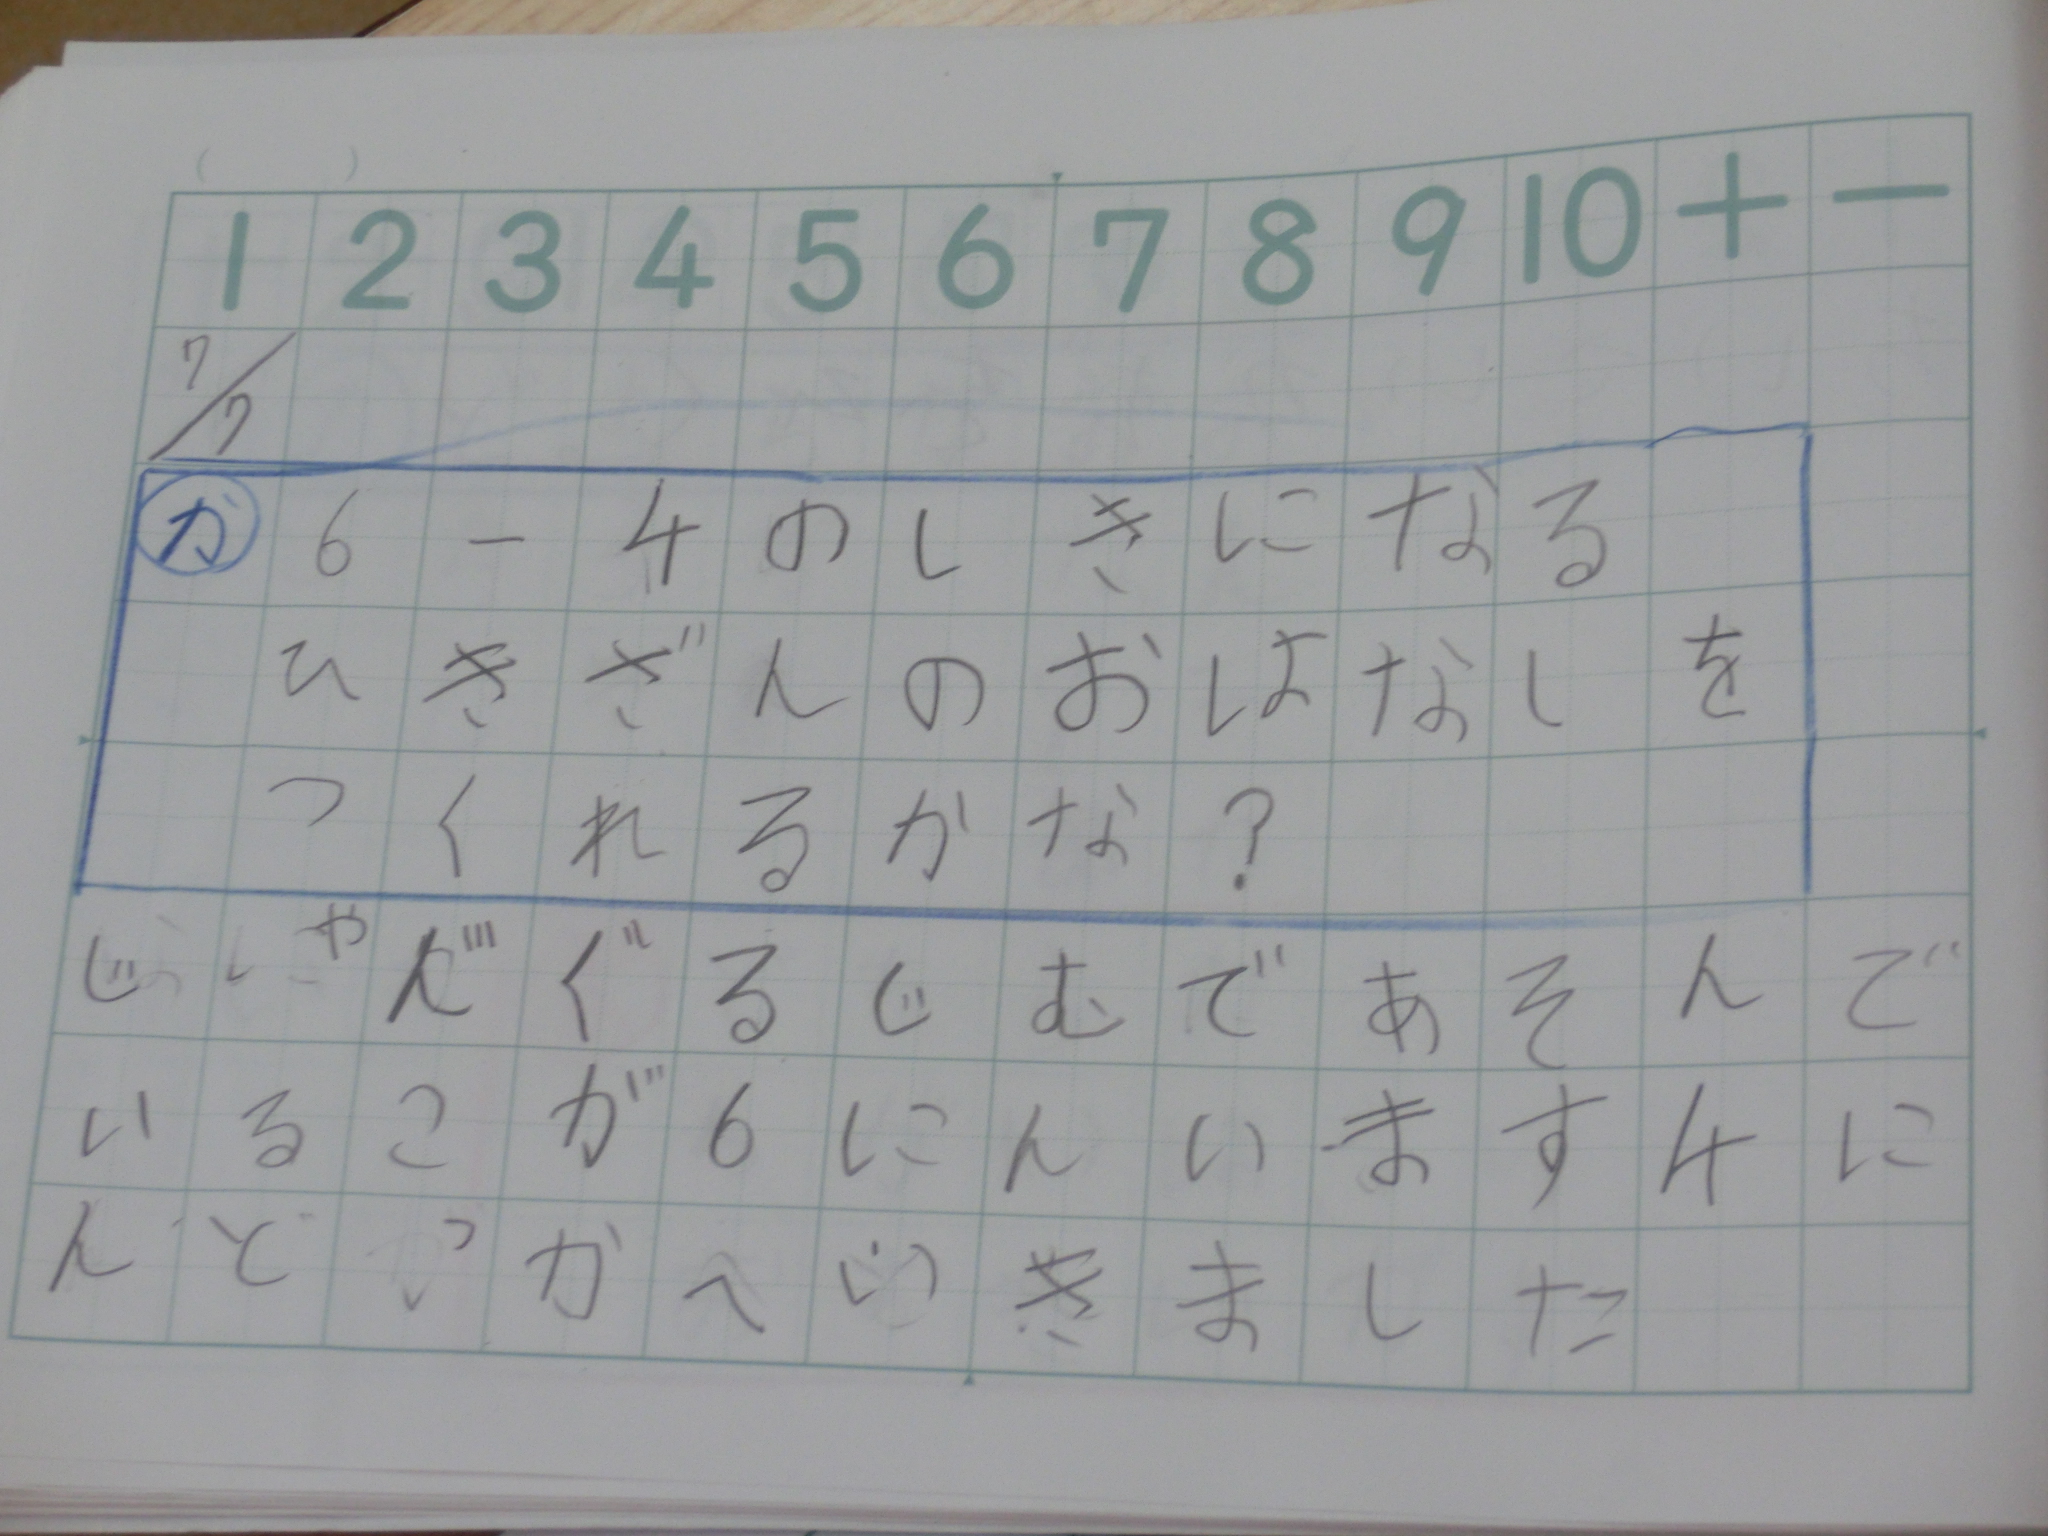 ( )
1 2 3 4 5 6 7 8 9 10 + −
7/7
か 6−4のしきになる
ひきざんのおはなしを
つくれるかな?
じゃんぐるじむであそんで
いるこが6にんいます4に
んどっかへいきました